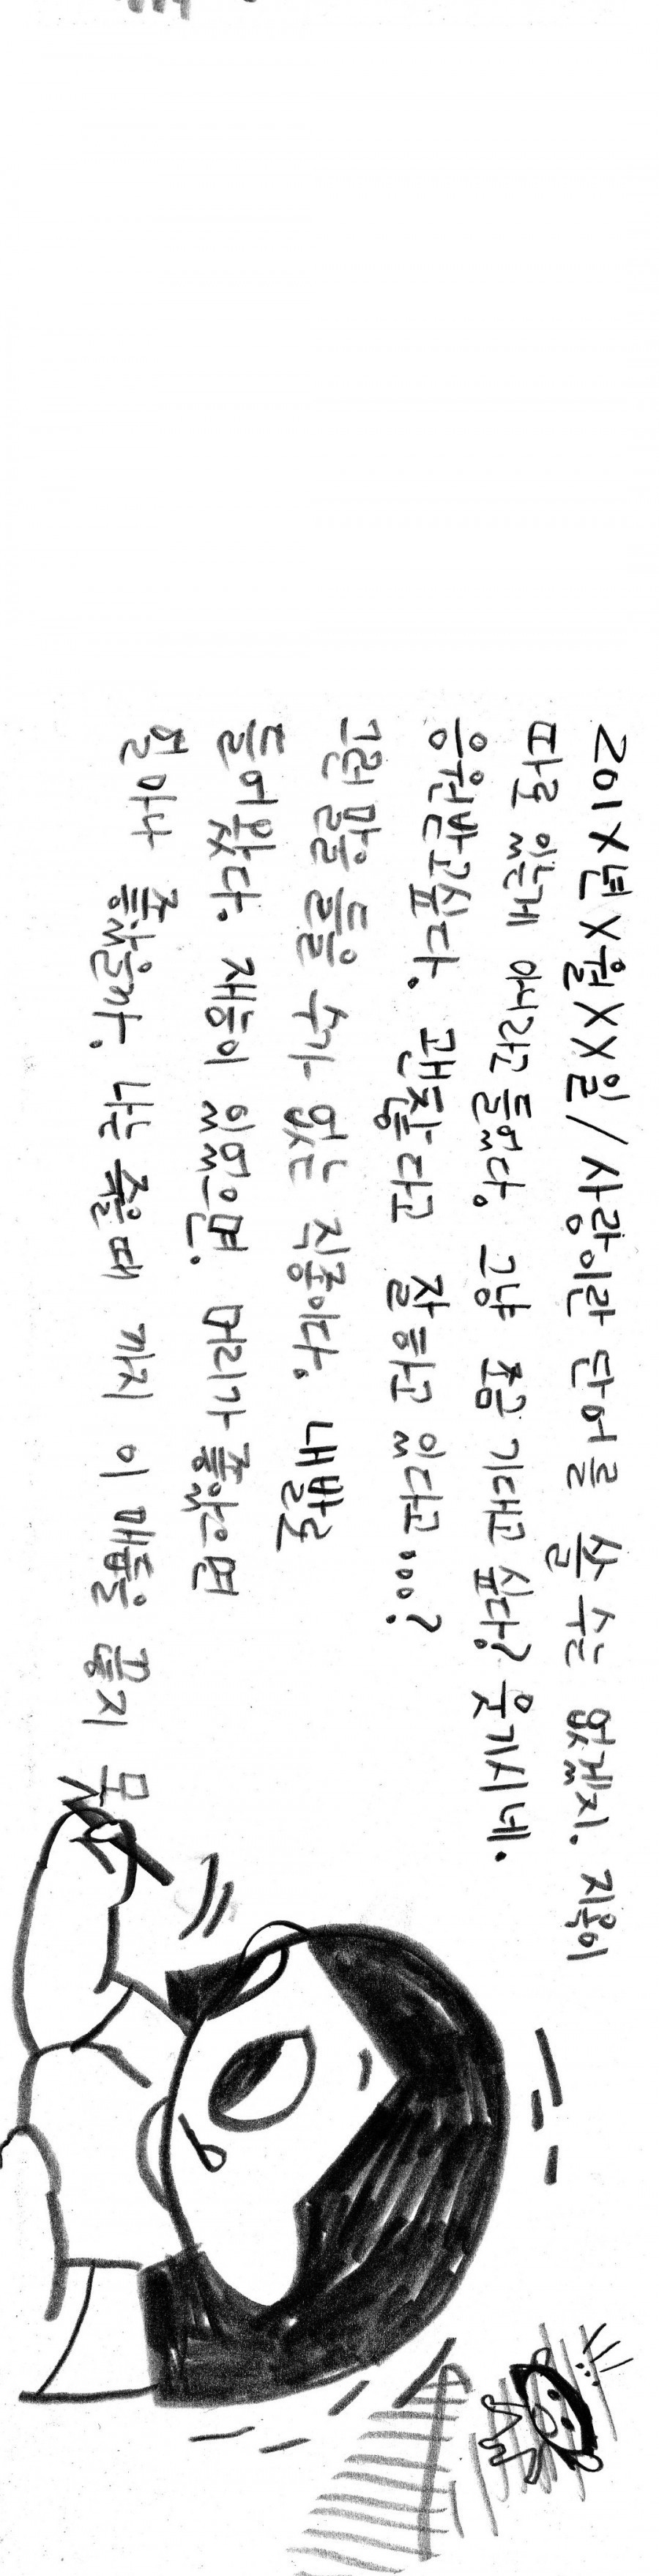 201X년 X월 XX일 / 사랑이란 단어를 쓸 수는 없겠지. 지옥이
따로 있는게 아니라고 들었다. 그냥 조금 기대고 싶다? 웃기시네.
응원받고싶다. 괜찮다고 잘 하고 있다고...?
그런 말을 들을 수가 없는 직종이다. 내발로
들어왔다. 재능이 있었으면. 머리가 좋았으면
얼마나 좋았을까. 나는 죽을 때 까지 이 매듭을 끊지 못